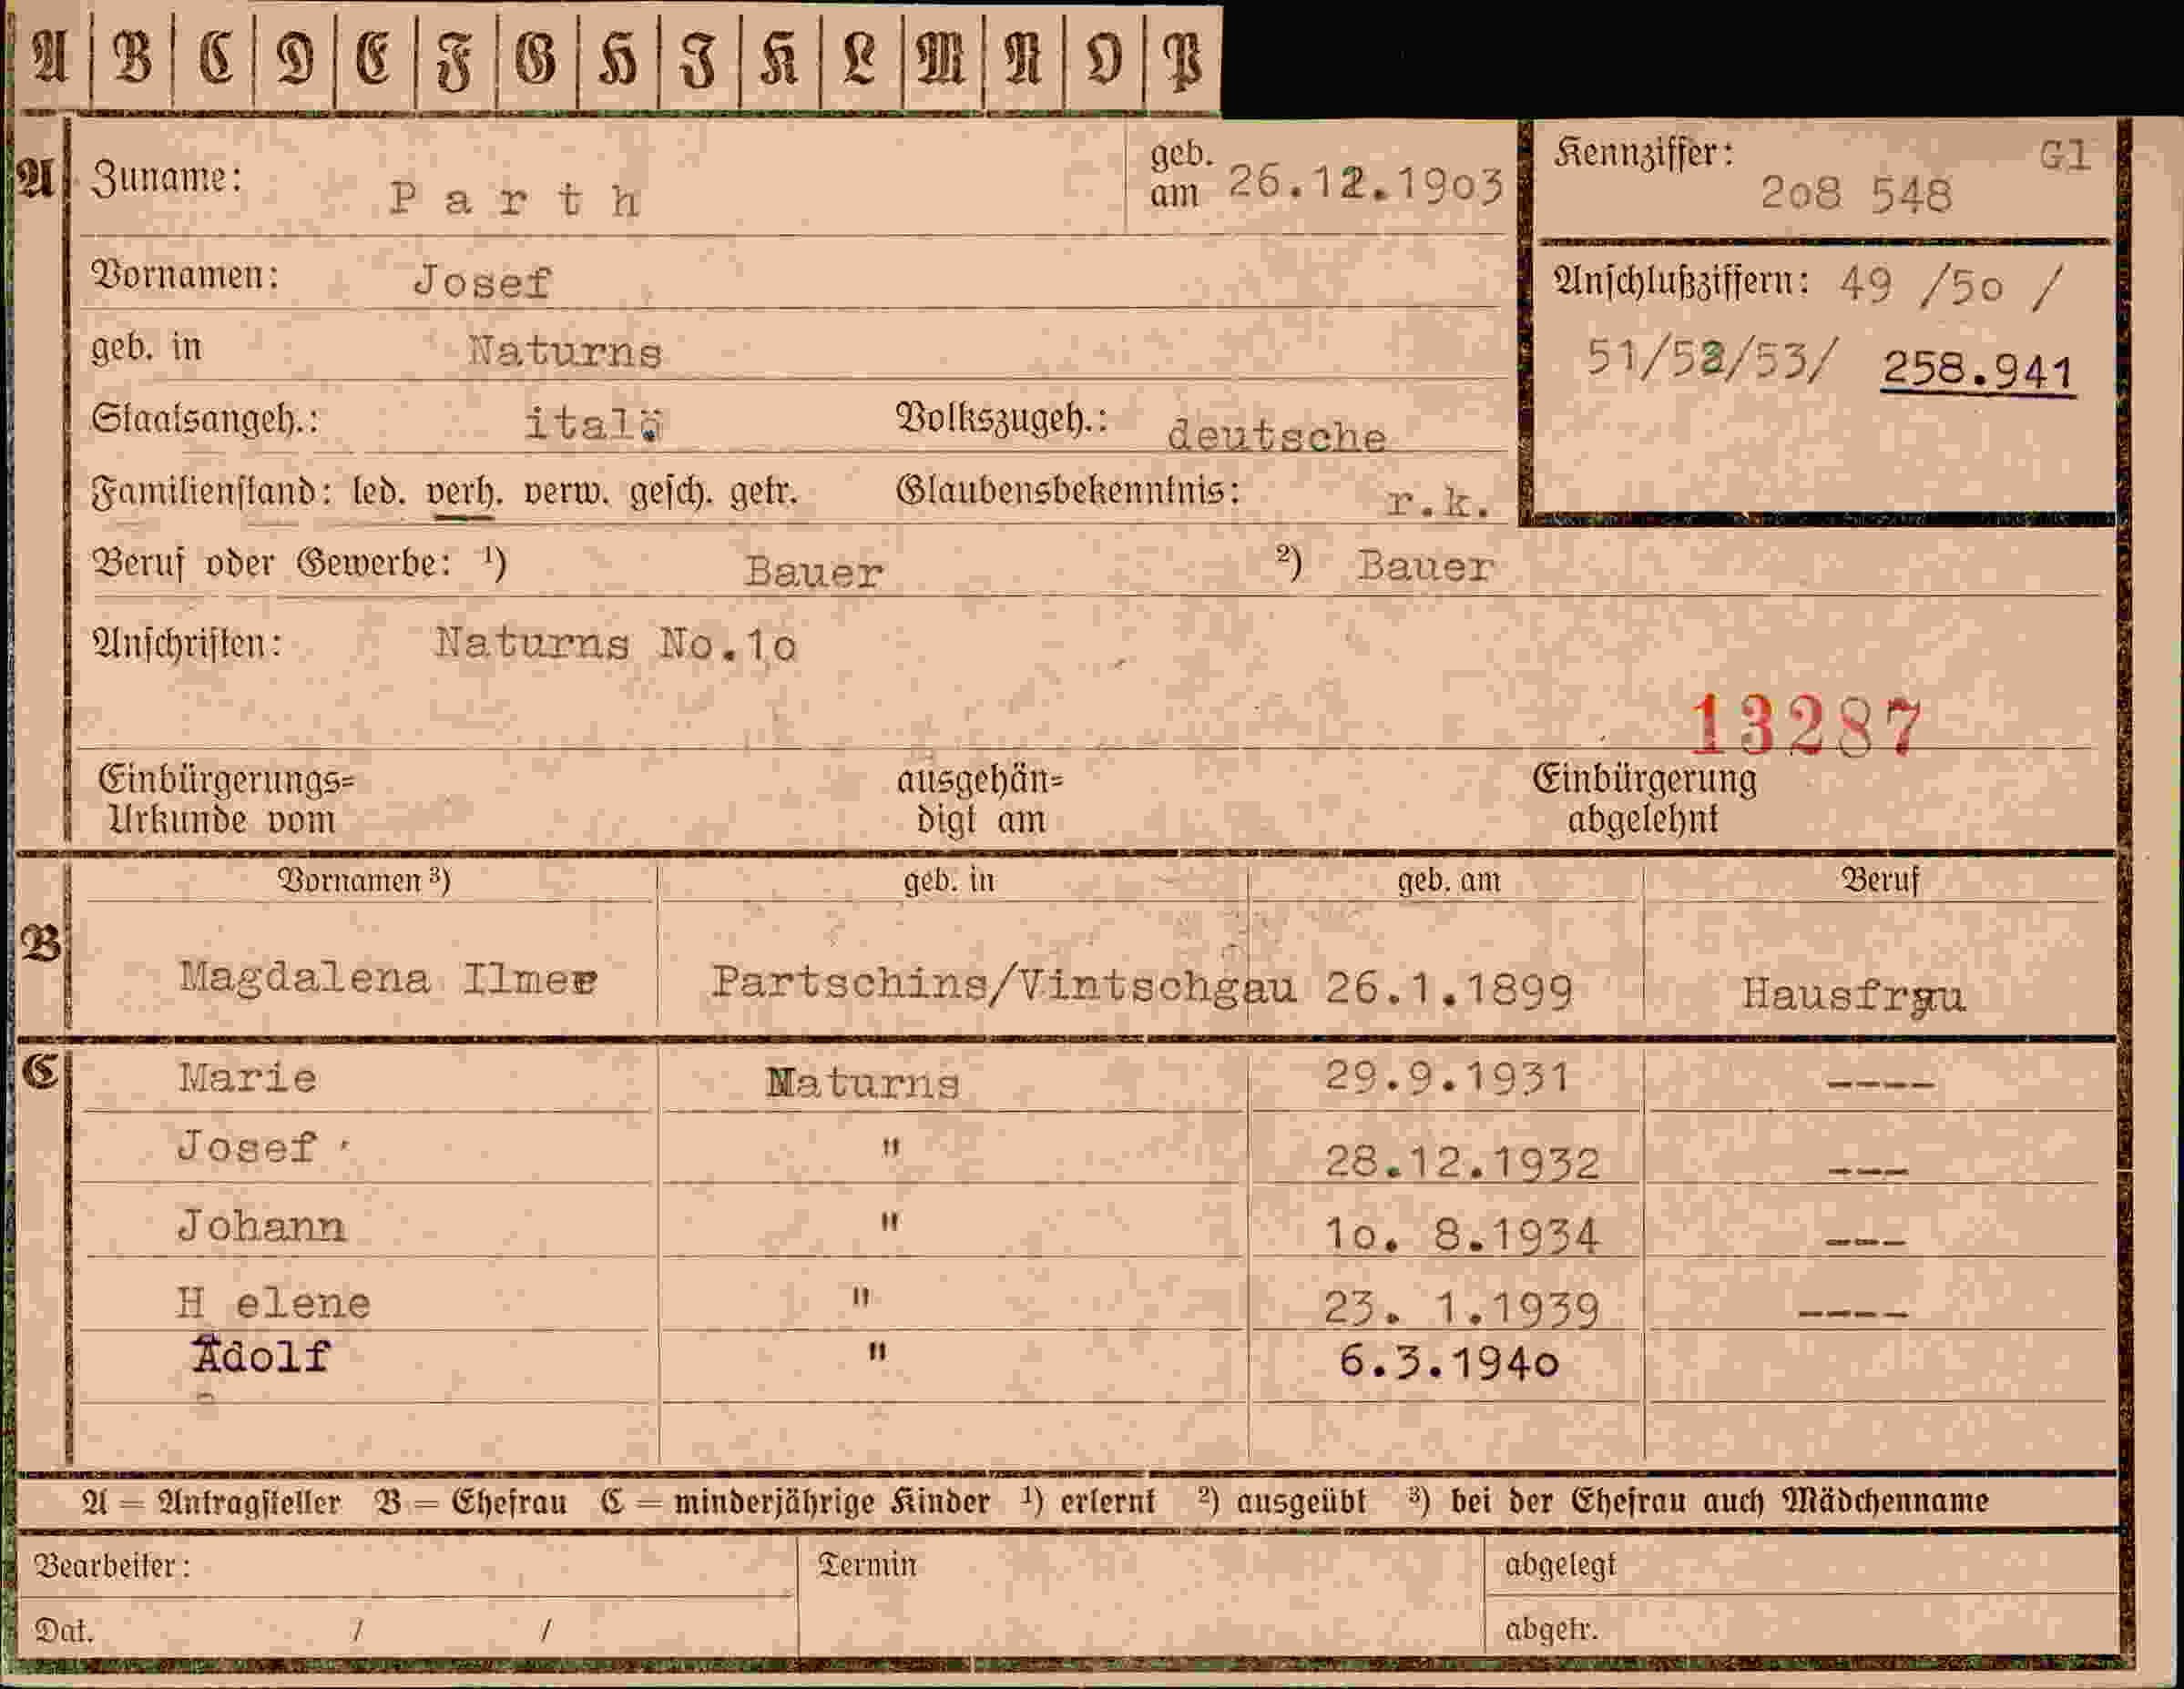 A B C D E F G H I K L M N O P
A Zuname: Parth geb. am 26.12.1903
Kennziffer: Gl
208 548
Vornamen: Josef
Anschlußziffern: 49 /50 /
51/52/53/ 258.941
geb. in Naturns
Staatsangeh.: ital. Volkszugeh.: deutsche
Familienstand: led. verh. verw. gesch. getr. Glaubensbekenntnis: r.k.
Beruf oder Gewerbe: ¹) Bauer ²) Bauer
Anschriften: Naturns No.1o
13287
Einbürgerungs=
Urkunde vom
ausgehän=
digt am
Einbürgerung
abgelehnt
Vornamen ³) geb. in geb. am Beruf
B Magdalena Ilmer Partschins/Vintschgau 26.1.1899 Hausfrau
C Marie Naturns 29.9.1931 ----
Josef " 28.12.1932 ---
Johann " 1o. 8.1934 ---
H elene " 23. 1.1939 ----
Adolf " 6.3.194o
A = Antragsteller B = Ehefrau C = minderjährige Kinder ¹) erlernt ²) ausgeübt ³) bei der Ehefrau auch Mädchenname
Bearbeiter: Termin abgelegt
Dat. / / abgetr.